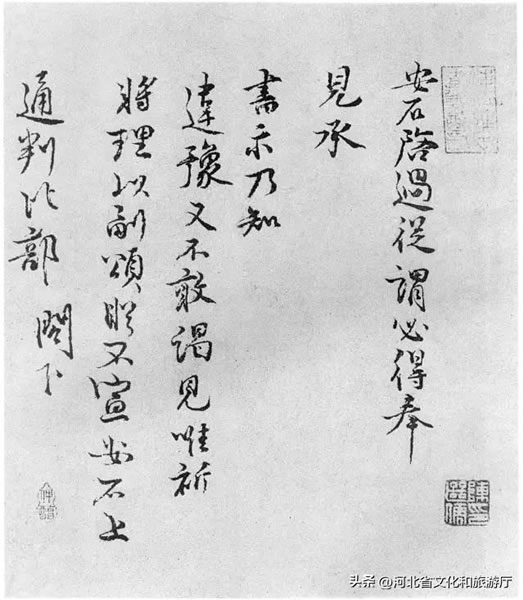 安石啓過從謂必得奉
見承
書示乃知
違豫又不敢謁見唯祈
將理以副頌眹不宣安石上
通判比部 閣下
头条 @河北省文化和旅游厅